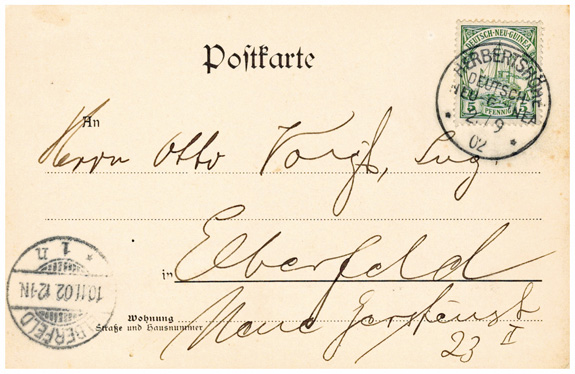 Postkarte
DEUTSCH-NEU-GUINEA
5 PFENNIG 5
HERBERTSHÖHE
DEUTSCH-
NEU-G
21/9
02
An
Herrn Otto Voigt, Ing.
in Elberfeld
Wohnung
Straße und Hausnummer
Neue Gerstenst
23 II
ERFELD
10.11.02.12-1N.
* 1 n